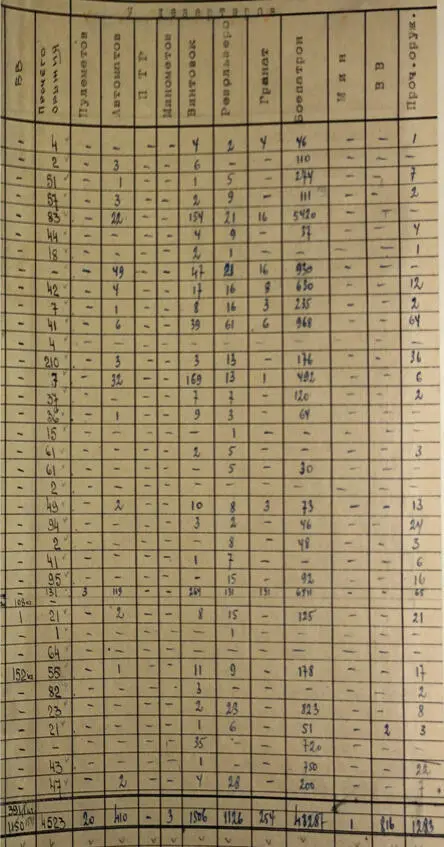 У
ВВ Прочего оружия Пулеметов Автоматов ПТР Минометов Винтовок Револьверо Гранат Боепатрон Мин ВВ Проч.оруж.
- 4 - - - - 4 2 4 46 - - 1
- 2 - 3 - - 6 - - 110 - - -
- 51 - 1 - - 1 5 - 274 - - 7
- 57 - 3 - - 2 9 - 111 - - 2
- 83 - 22 - - 154 21 16 5420 - -
- 44 - - - - 4 9 - 37 - - 4
- 18 - - - - 2 1 - - - - 1
- - - 49 - - 47 16 930 - - -
- 42 - 4 - - 17 16 8 630 - - 12
- 7 - 1 - - 8 16 3 235 - - 2
- 41 - 6 - - 39 61 6 968 - - 64
- 4 - - - - - - - - - - -
- 210 - 3 - - 3 13 - 176 - - 36
- 7 - 32 - - 169 13 1 492 - - 6
- 37 - - - - 7 7 - 120 - - 2
- - 1 - - 9 3 - 64 - - -
- 15 - - - - - 1 - - - - -
- 61 - - - - 2 5 - - - - 3
- 61 - - - - - 5 - 30 - - -
- 2 - - - - - - - - - - -
- 49 - 2 - - 10 8 3 73 - - 13
- 94 - - - - 3 2 - 46 - - 24
- 2 - - - - - 8 - 48 - - 3
- 41 - - - - 1 7 - - - - 6
- 95 - - - - - 15 - 92 - - 16
- 131 3 119 - - 264 131 191 - - 65
1 21 - 2 - - 8 15 - 125 - - 21
- 1 - - - - - 1 - - - - -
- 64 - - - - - - - - - - -
152кг 55 - 1 - - 11 9 - 178 - - 17
- 82 - - - - 3 - - - - - 2
- 23 - - - - 2 23 - 823 - - 8
- 21 - - - - 1 6 - 51 - 2 3
- - - - - - 35 - - 720 - - -
- 43 - - - - 1 - - 750 - - 22
- 47 - 2 - - 4 28 - 200 - - 7
4523 20 410 - 3 1506 1126 254 48287 1 816 1283